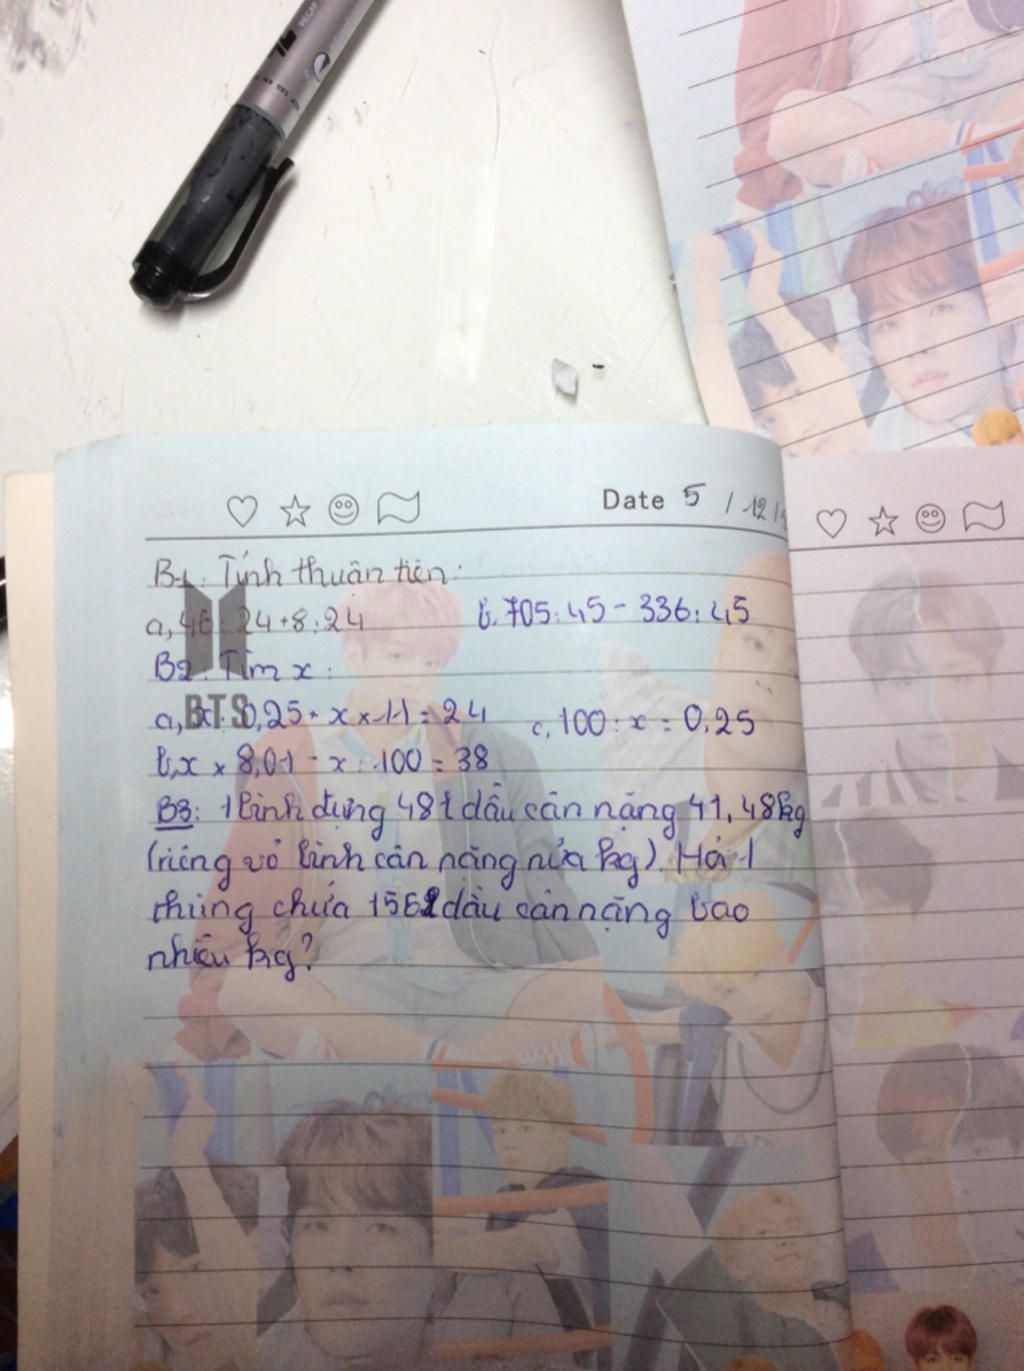 Date 5 / 12 /
B1: Tính thuận tiện:
a, 40: 24+8:24
b, 705:45 - 336:45
B2: Tìm x:
BTS
a, x: 0,25 + x x 11 = 24
c, 100 : x = 0,25
b, x x 8,01 - x : 100 = 38
B3: 1 bình đựng 48 l dầu cân nặng 41,48kg
(riêng vỏ bình cân nặng nửa kg). Hỏi 1
thùng chứa 156 l dầu cân nặng bao
nhiêu kg?